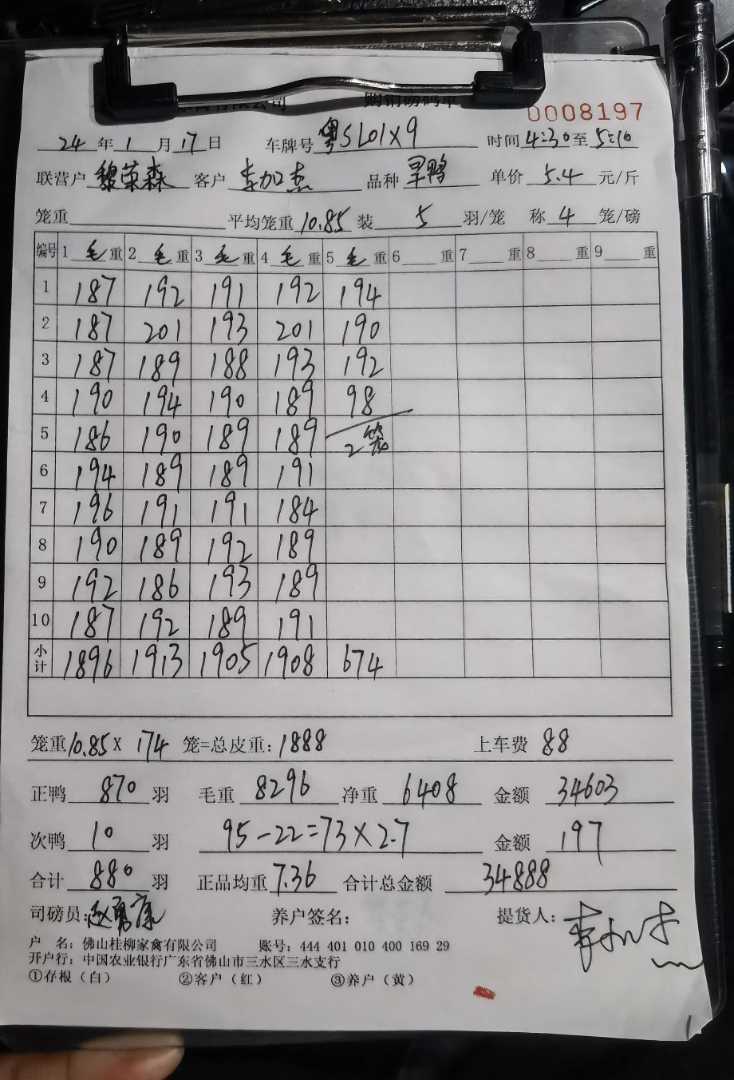 有限公司 购销磅码单
0008197
24 年 1 月 17 日 车牌号 粤SL01X9 时间 4:30 至 5:10
联营户 黎荣森 客户 李加杰 品种 旱鸭 单价 5.4 元/斤
笼重 平均笼重 10.85 装 5 羽/笼 称 4 笼/磅
编号 1 毛 重 2 毛 重 3 毛 重 4 毛 重 5 毛 重 6 重 7 重 8 重 9 重
1 187 192 191 192 194
2 187 201 193 201 190
3 187 189 188 193 192
4 190 194 190 189 98
5 186 190 189 189 2笼
6 194 189 189 191
7 196 191 191 184
8 190 189 192 189
9 192 186 193 189
10 187 192 189 191
小计 1896 1913 1905 1908 674
笼重 10.85 × 174 笼=总皮重: 1888 上车费 88
正鸭 870 羽 毛重 8296 净重 6408 金额 34603
次鸭 10 羽 95-22=73×2.7 金额 197
合计 880 羽 正品均重 7.36 合计总金额 34888
司磅员: 养户签名: 提货人:
户 名: 佛山桂柳家禽有限公司 账号: 444 401 010 400 169 29
开户行: 中国农业银行广东省佛山市三水区三水支行
①存根(白) ②客户(红) ③养户(黄)